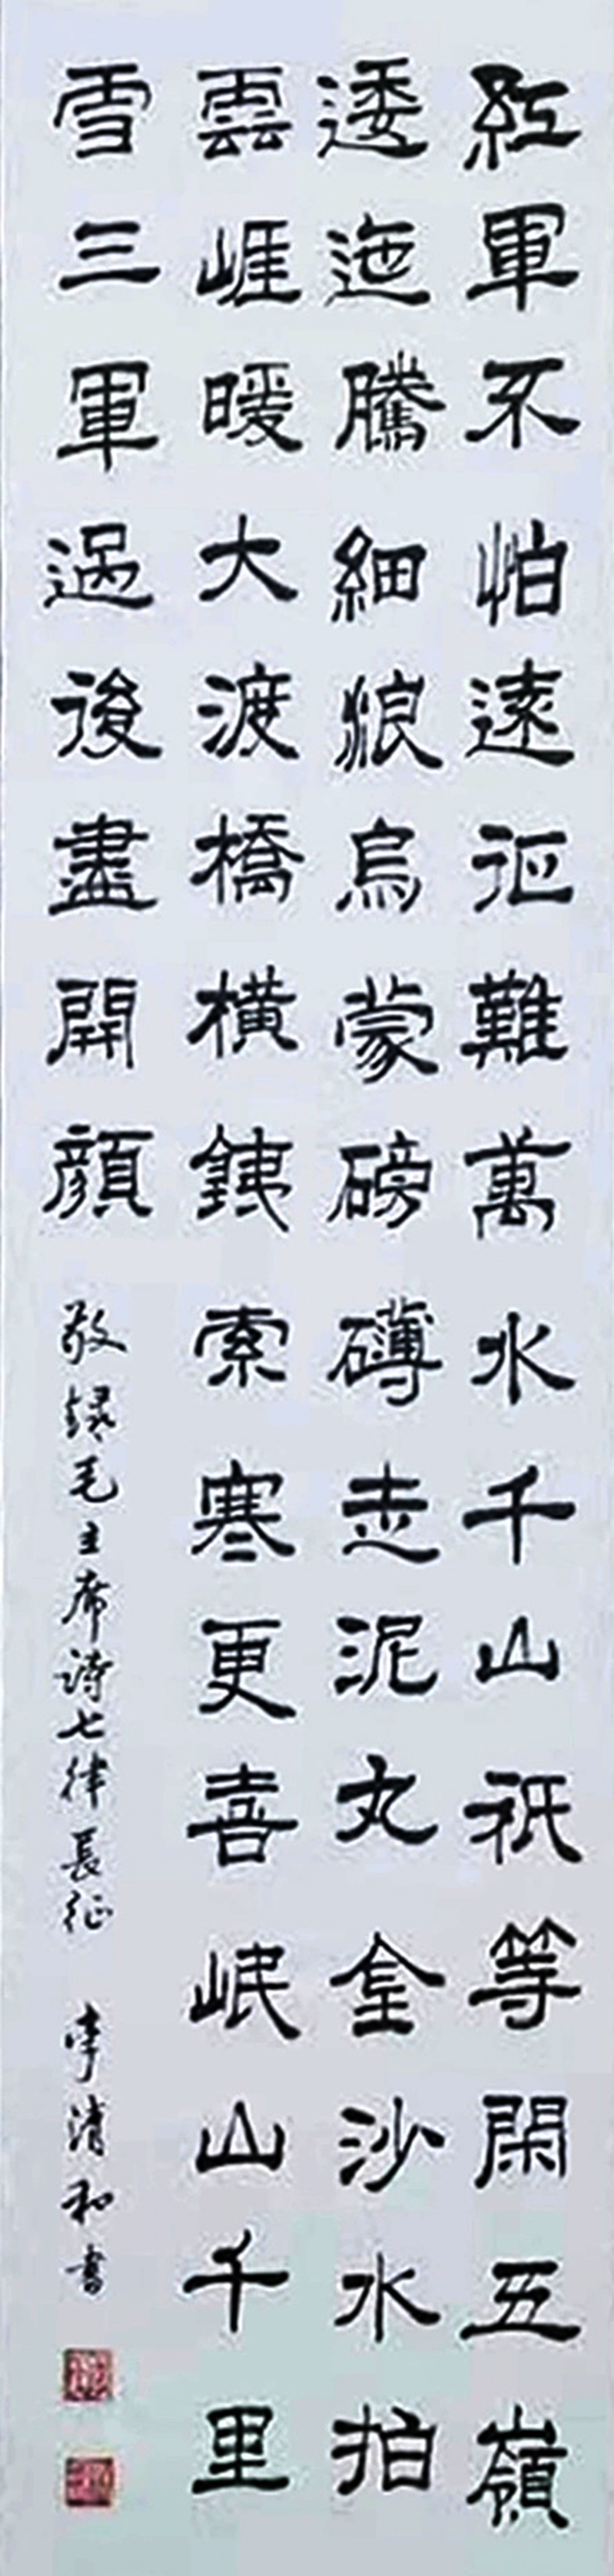 紅軍不怕遠征難萬水千山祇等閑五嶺
逶迤騰細浪烏蒙磅礴走泥丸金沙水拍
雲崖暖大渡橋橫鐵索寒更喜岷山千里
雪三軍過後盡開顏
敬録毛主席詩七律長征 李清和書